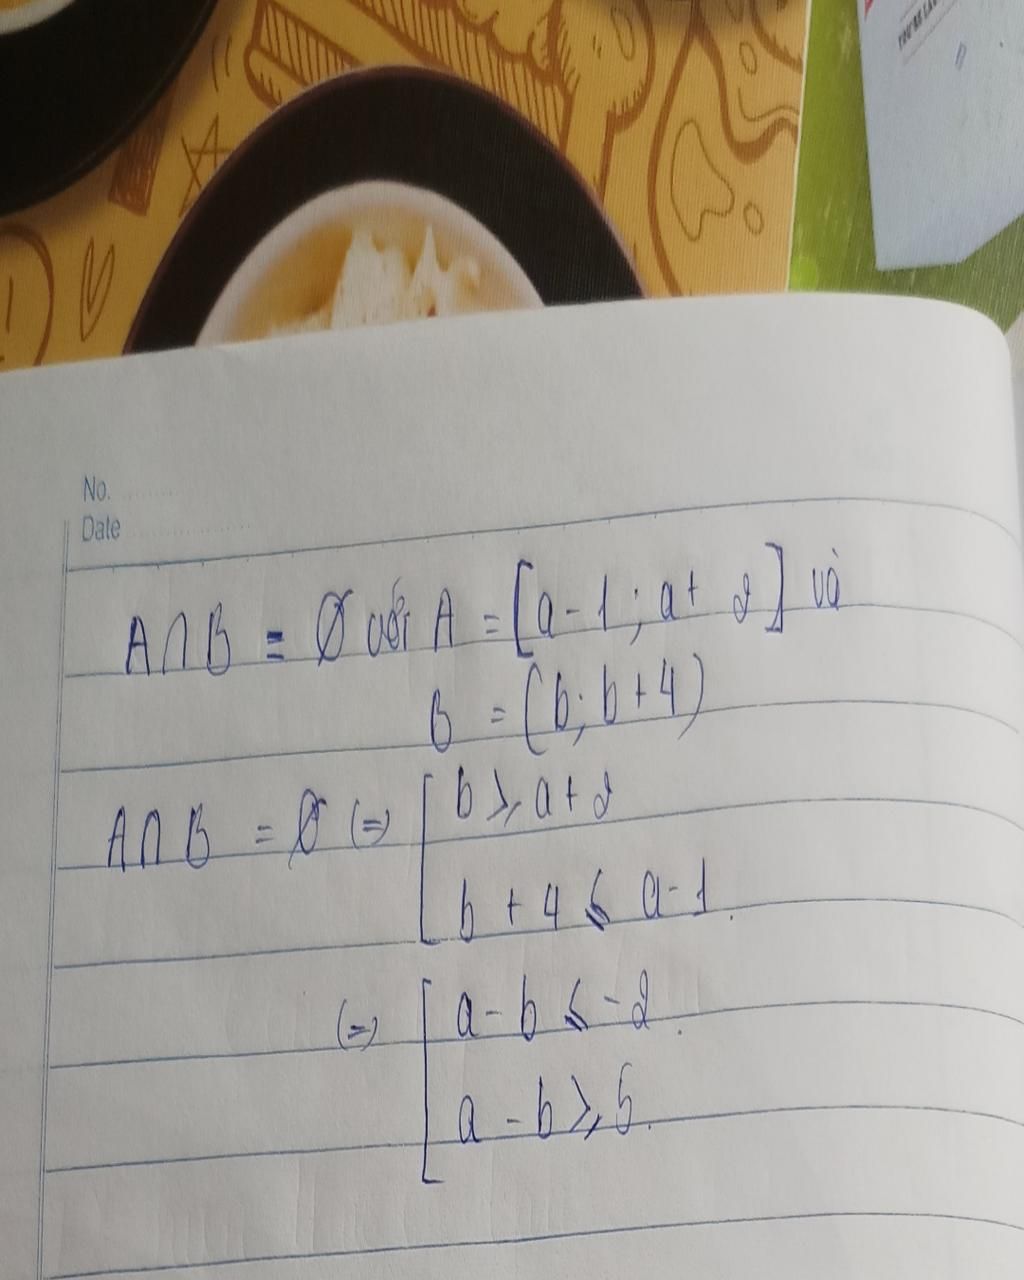 No.
Date
A∩B = Ø với A = [a-1; a+2] và
B = (b; b+4)
A∩B = Ø (=) [ b ≥ a+2
b + 4 ≤ a-1.
(=) [ a - b ≤ -2.
a - b ≥ 5.